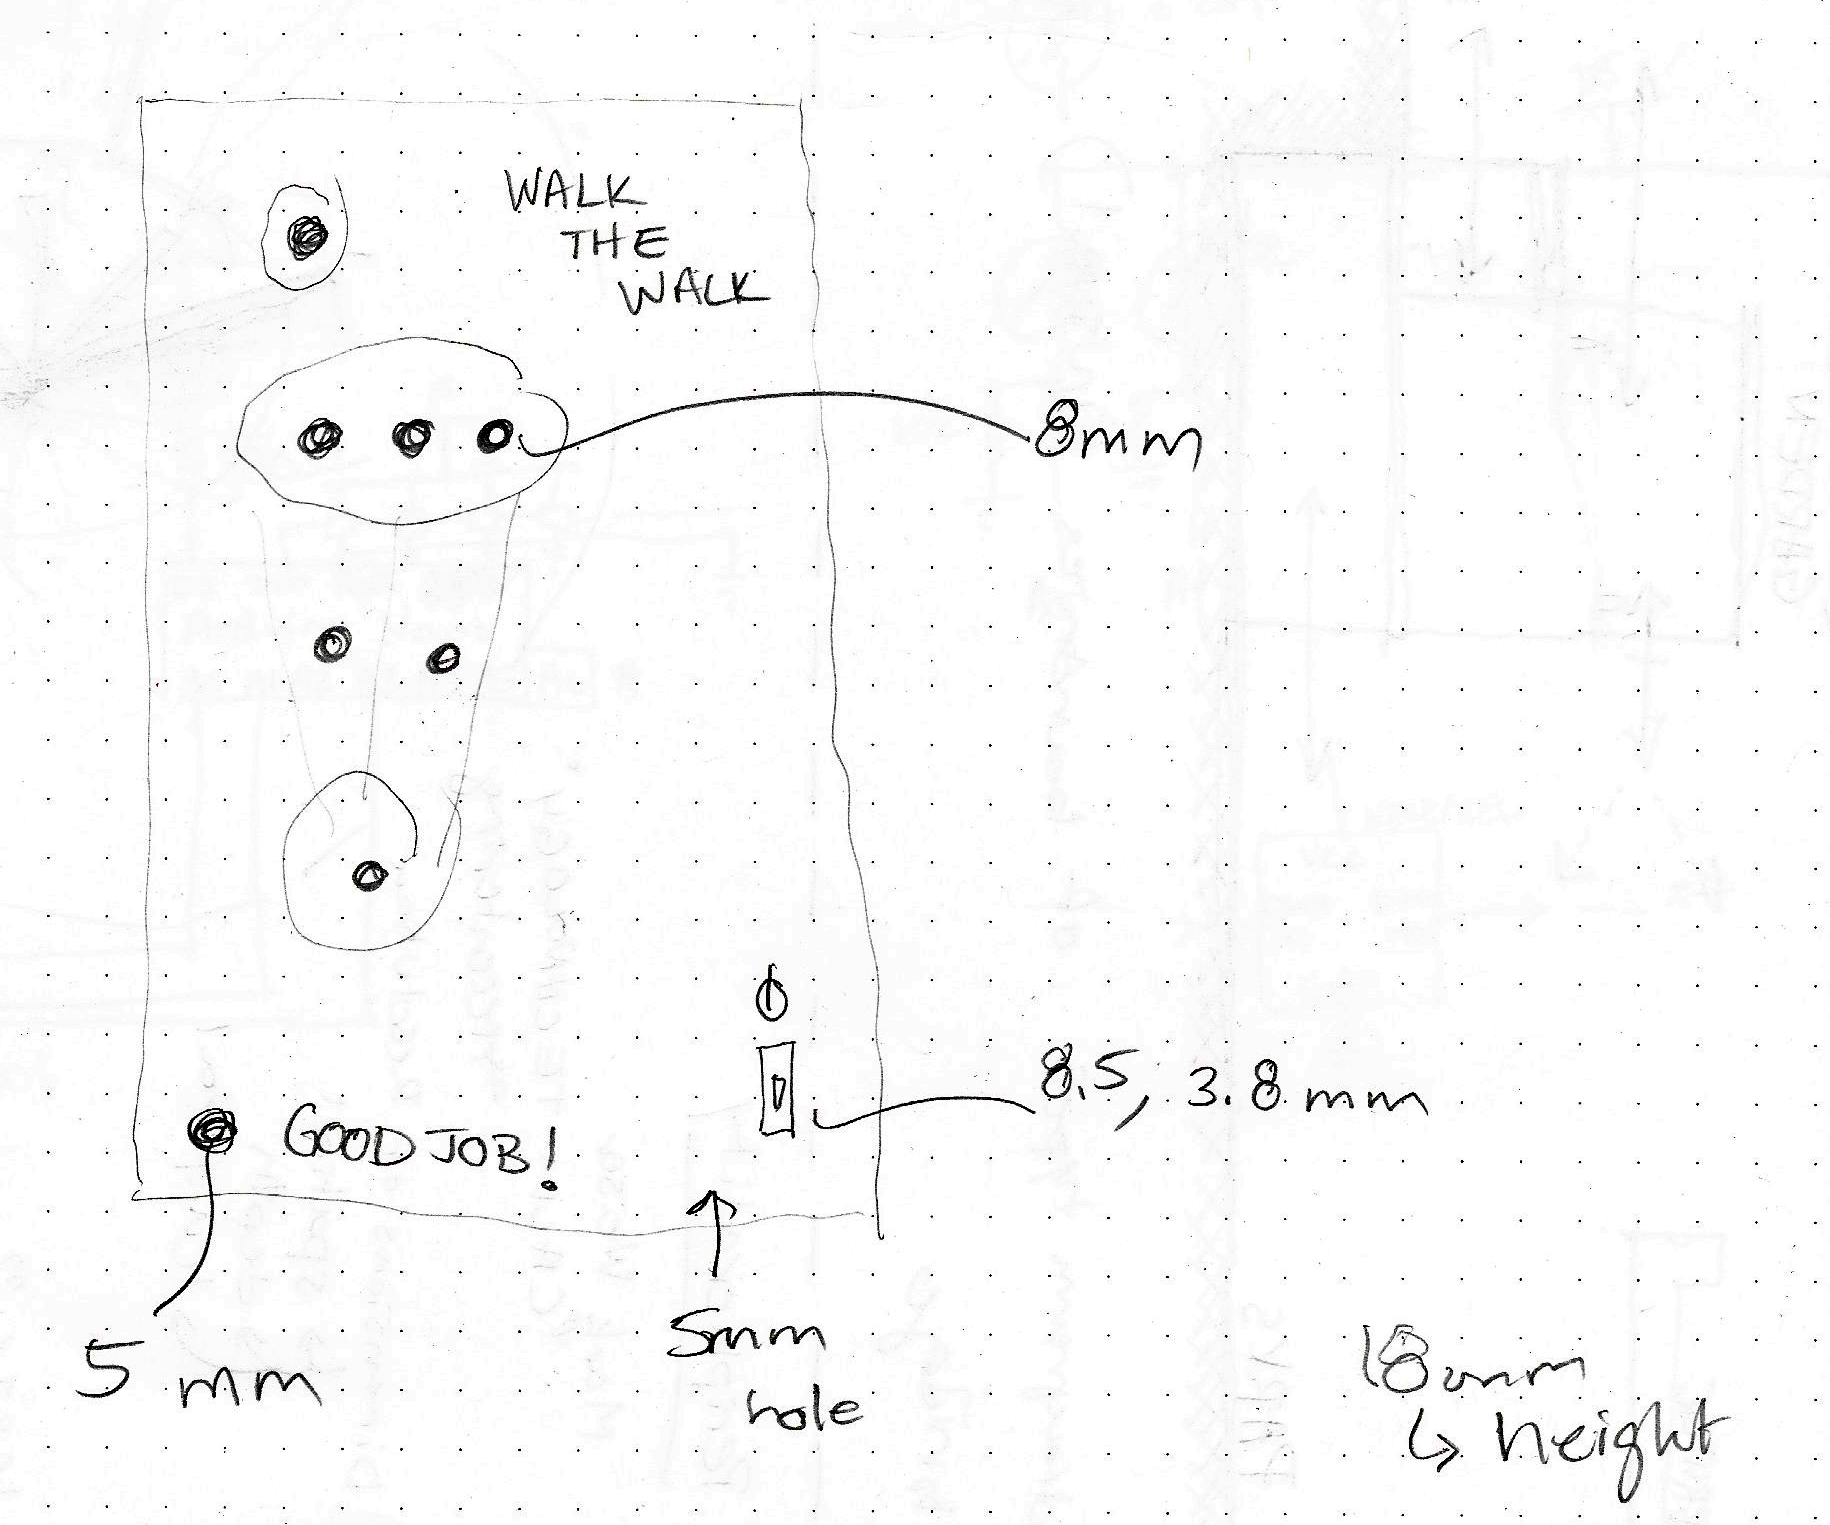 WALK
THE
WALK
8mm
8.5, 3.8mm
GOOD JOB!
5mm
5mm
hole
18mm
↳ height